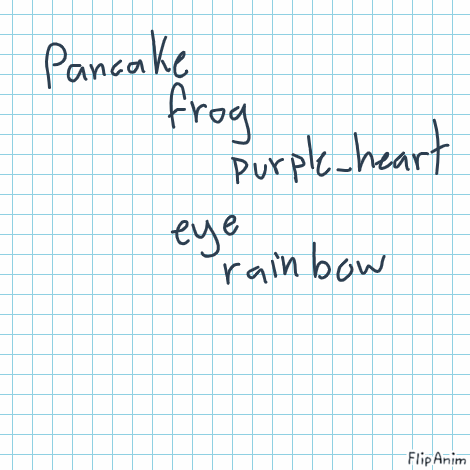 Pancake
frog
purple_heart
eye
rainbow
FlipAnim